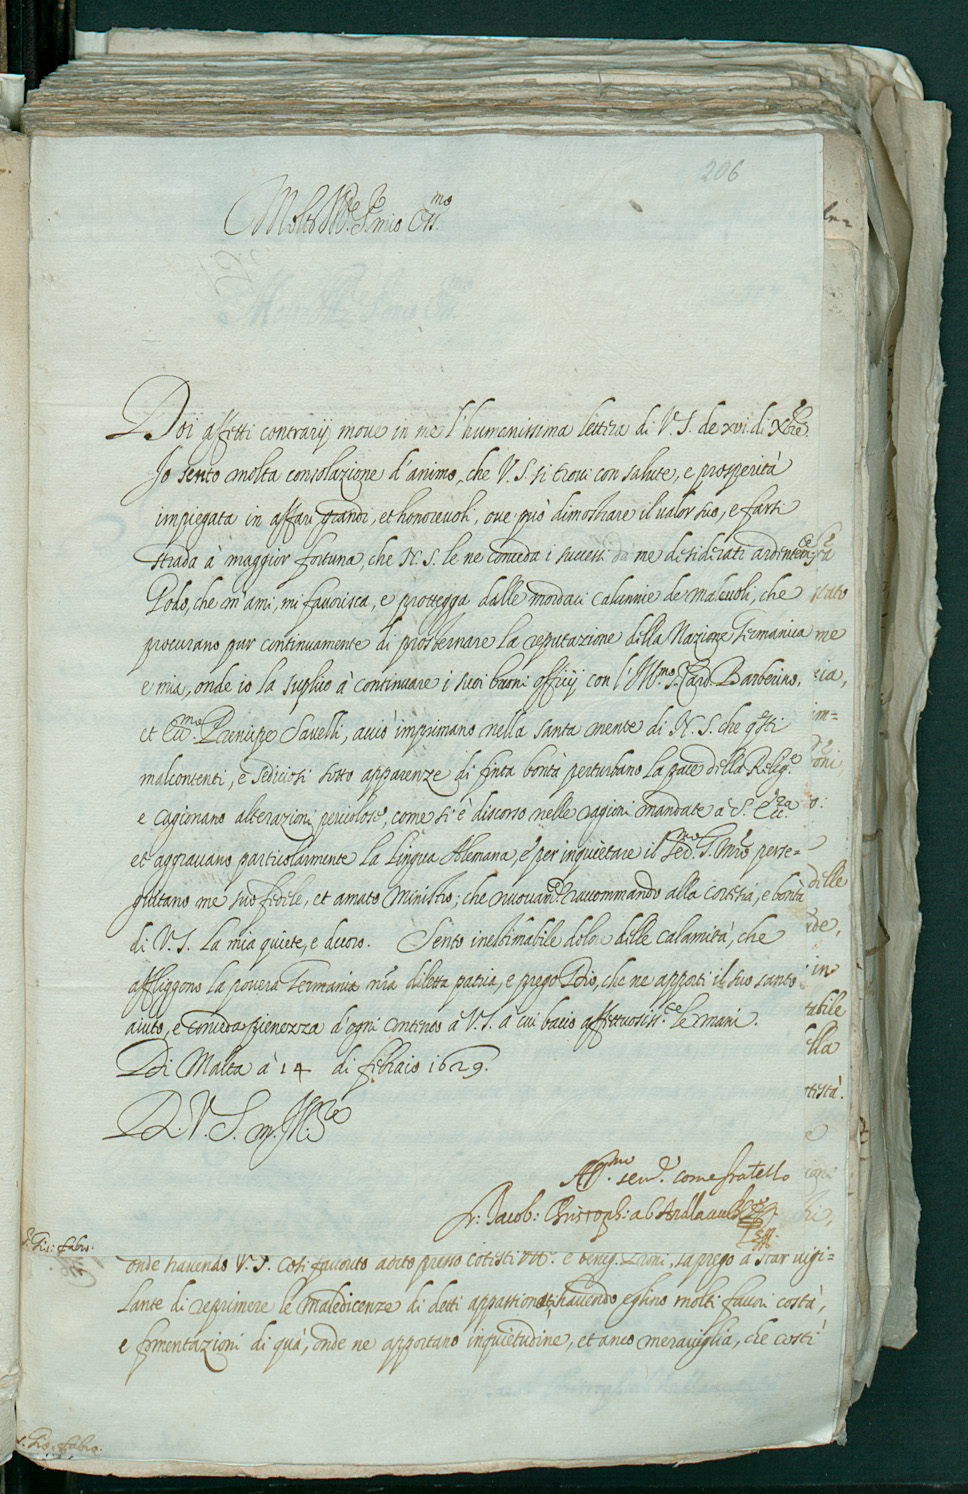 206
Molto Ill.re S.r mio Oss.mo
Doi affetti contrarij moue in me l'humanissima lettera di V. S. de xvi. di Xbre.
Io sento molta consolazione d'animo, che V. S. si troui con salute, e prosperità
impiegata in affari grandi, et honoreuoli, oue può dimostrare il valor suo, e farsi
strada à maggior fortuna, che N. S. le ne conceda i successi da me desiderati ardentem.te
Godo, che m'ami, mi fauorisca, e protegga dalle mordaci calunnie de maleuoli, che
procurano pur continuamente di prosternare la reputazione della Nazione Germanica
e mia, onde io la suplico à continuare i suoi buoni officij con l'Ill.mo S.r Card. Barberino,
et Ecc.mo Principe Sauelli, acciò imprimano nella santa mente di N. S. che q.sti
malcontenti, e sediciosi sotto apparenze di finta bontà perturbano la pace della Relig.e
e cagionano alterazioni pericolose, come si è discorso nelle ragioni mandate à S. Ecc.za
et aggrauano particolarmente la Lingua Alemana, e per inquietare il Sed.mo G. Mro perse=
guitano me suo fedele, et amato Ministro; che nuouam.te raccommando alla cortesia, e bontà
di V. S. la mia quiete, e decoro. Sento inestimabile dolore delle calamità, che
affliggono la pouera Germania nra diletta patria, e prego Dio, che ne apporti il suo santo
aiuto, e conceda pienezza d'ogni contento à V. S. à cui bacio affettuosiss.te le mani.
Di Malta à 14 di febraio 1629.
D. V. S. m. Ill.re
Aff.mo seru.e come fratello
fr: Jacob: Christoph: ab Andlauu
S. Gio: Fabro.
onde hauendo V. S. così fauorito adito presso cotesti Ill.mi e benig. Proni, la prego à star uigi=
lante di reprimere le maledicenze di detti appassionati, hauendo eglino molti fauori costà,
e fomentazioni di quà, onde ne apportano inquietudine, et anco merauiglia, che costì
S. Gio: Fabro.
stato
me
im=
delle
in
della